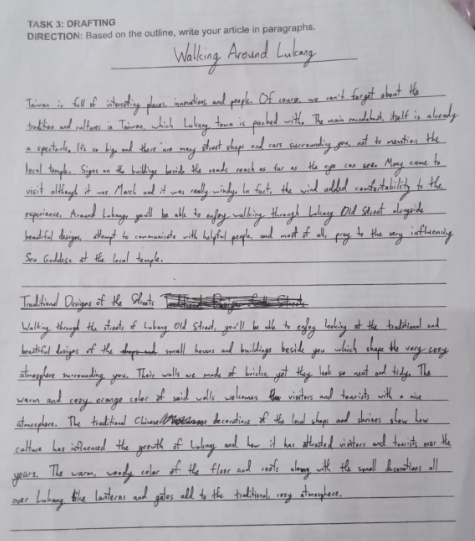 TASK 3: DRAFTING
DIRECTION: Based on the outline, write your article in paragraphs.
Walking Around Lukang
Taiwan is full of interesting places, innovations, and people. Of course, we can't forget about the
tradition and cultures in Taiwan, which Lukang town is packed with. The main roundabout itself is already
a spectacle. It's so big and there are many street shops and cars surrounding you, not to mention the
local temple. Signs on the buildings beside the roads reach as far as the eye can see. Many came to
visit although it was March and it was really windy. In fact, the wind added comfortability to the
experience. Around Lukang, you'll be able to enjoy walking through Lukang Old Street alongside
beautiful designs, attempt to communicate with helpful people, and most of all, pray to the very influencing
Sea Goddess at the local temple.
Traditional Designs of the Streets
Walking through the streets of Lukang Old Street, you'll be able to enjoy looking at the traditional and
beautiful designs of the small houses and buildings beside you which shape the very cozy
atmosphere surrounding you. Their walls are made of bricks, yet they look so neat and tidy. The
warm and cozy orange color of said walls welcomes visitors and tourists with a nice
atmosphere. The traditional Chinese decorations of the local shops and shrines show how
culture has influenced the growth of Lukang and how it has attracted visitors and tourists over the
years. The warm, woody color of the floor and roofs along with the small decorations all
over Lukang like lanterns and gates add to the traditional, cozy atmosphere.